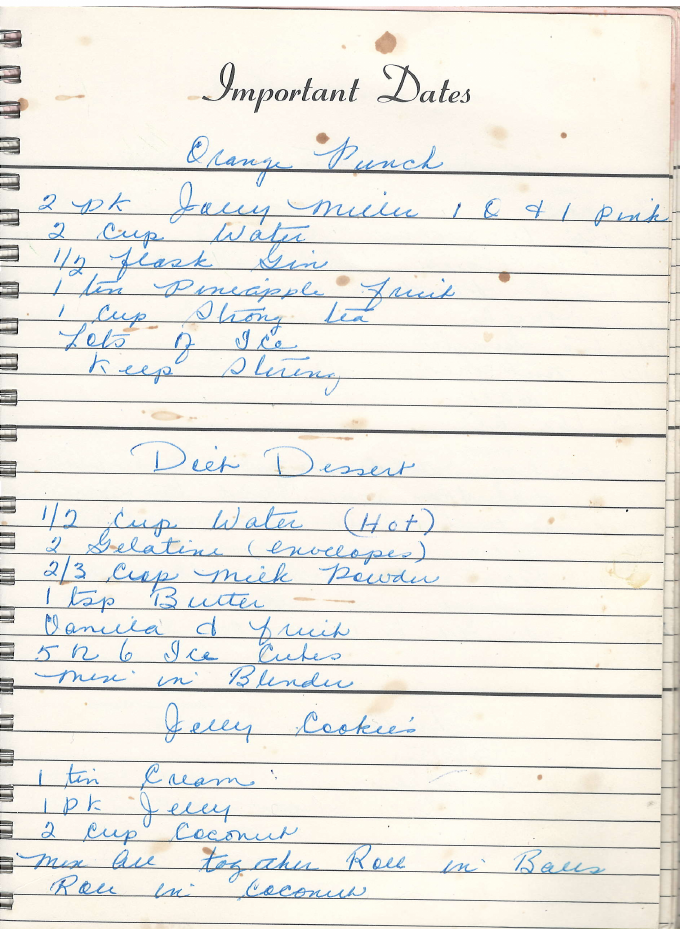 Important Dates
Orange Punch
2 pk Jelly Miller 1 O & 1 pink
2 cup Water
1/2 flask Gin
1 tin Pineapple fruit
1 cup Strong tea
Lots of Ice
Keep Stiring
Diet Dessert
1/2 cup Water (Hot)
2 Gelatine (envelopes)
2/3 cup milk Powder
1 tsp Butter
Vanilla & fruit
5 or 6 Ice Cubes
mix in Blender
Jelly Cookies
1 tin Cream
1 pk Jelly
2 cup Coconut
mix all together Roll in Balls
Roll in Coconut